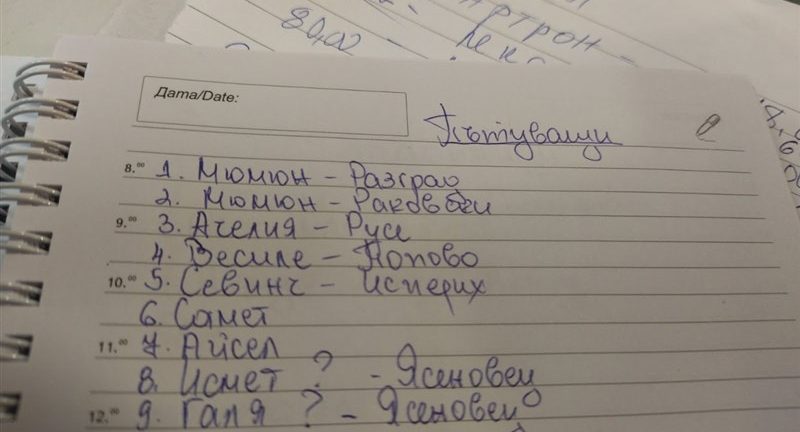 80,00 -
Дата/Date:
Пътуващи
8.00 1. Мюмюн - Разград
2. Мюмюн - Раковски
9.00 3. Ачелия - Русе
4. Весиле - Попово
10.00 5. Севинч - Исперих
6. Самет
11.00 7. Айсел
8. Исмет ? - Ясеновец
12.00 9. Галя ? - Ясеновец